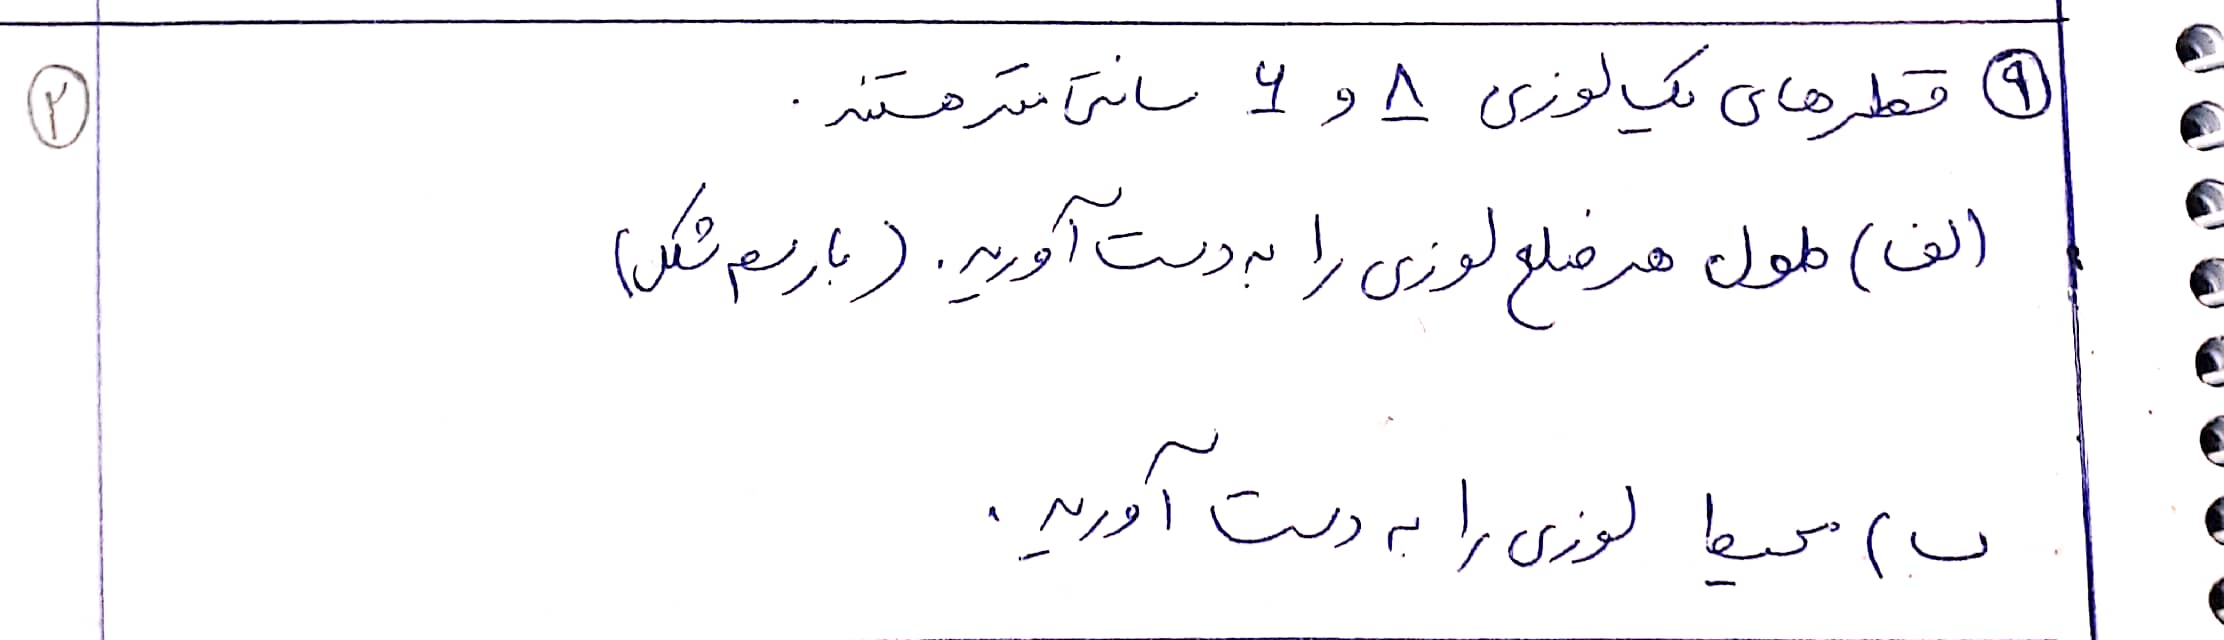 ۹ قطرهای یک لوزی ۸ و ۶ سانتی متر هستند.
۲
الف) طول هر ضلع لوزی را به دست آورید. (با رسم شکل)
ب) محیط لوزی را به دست آورید.